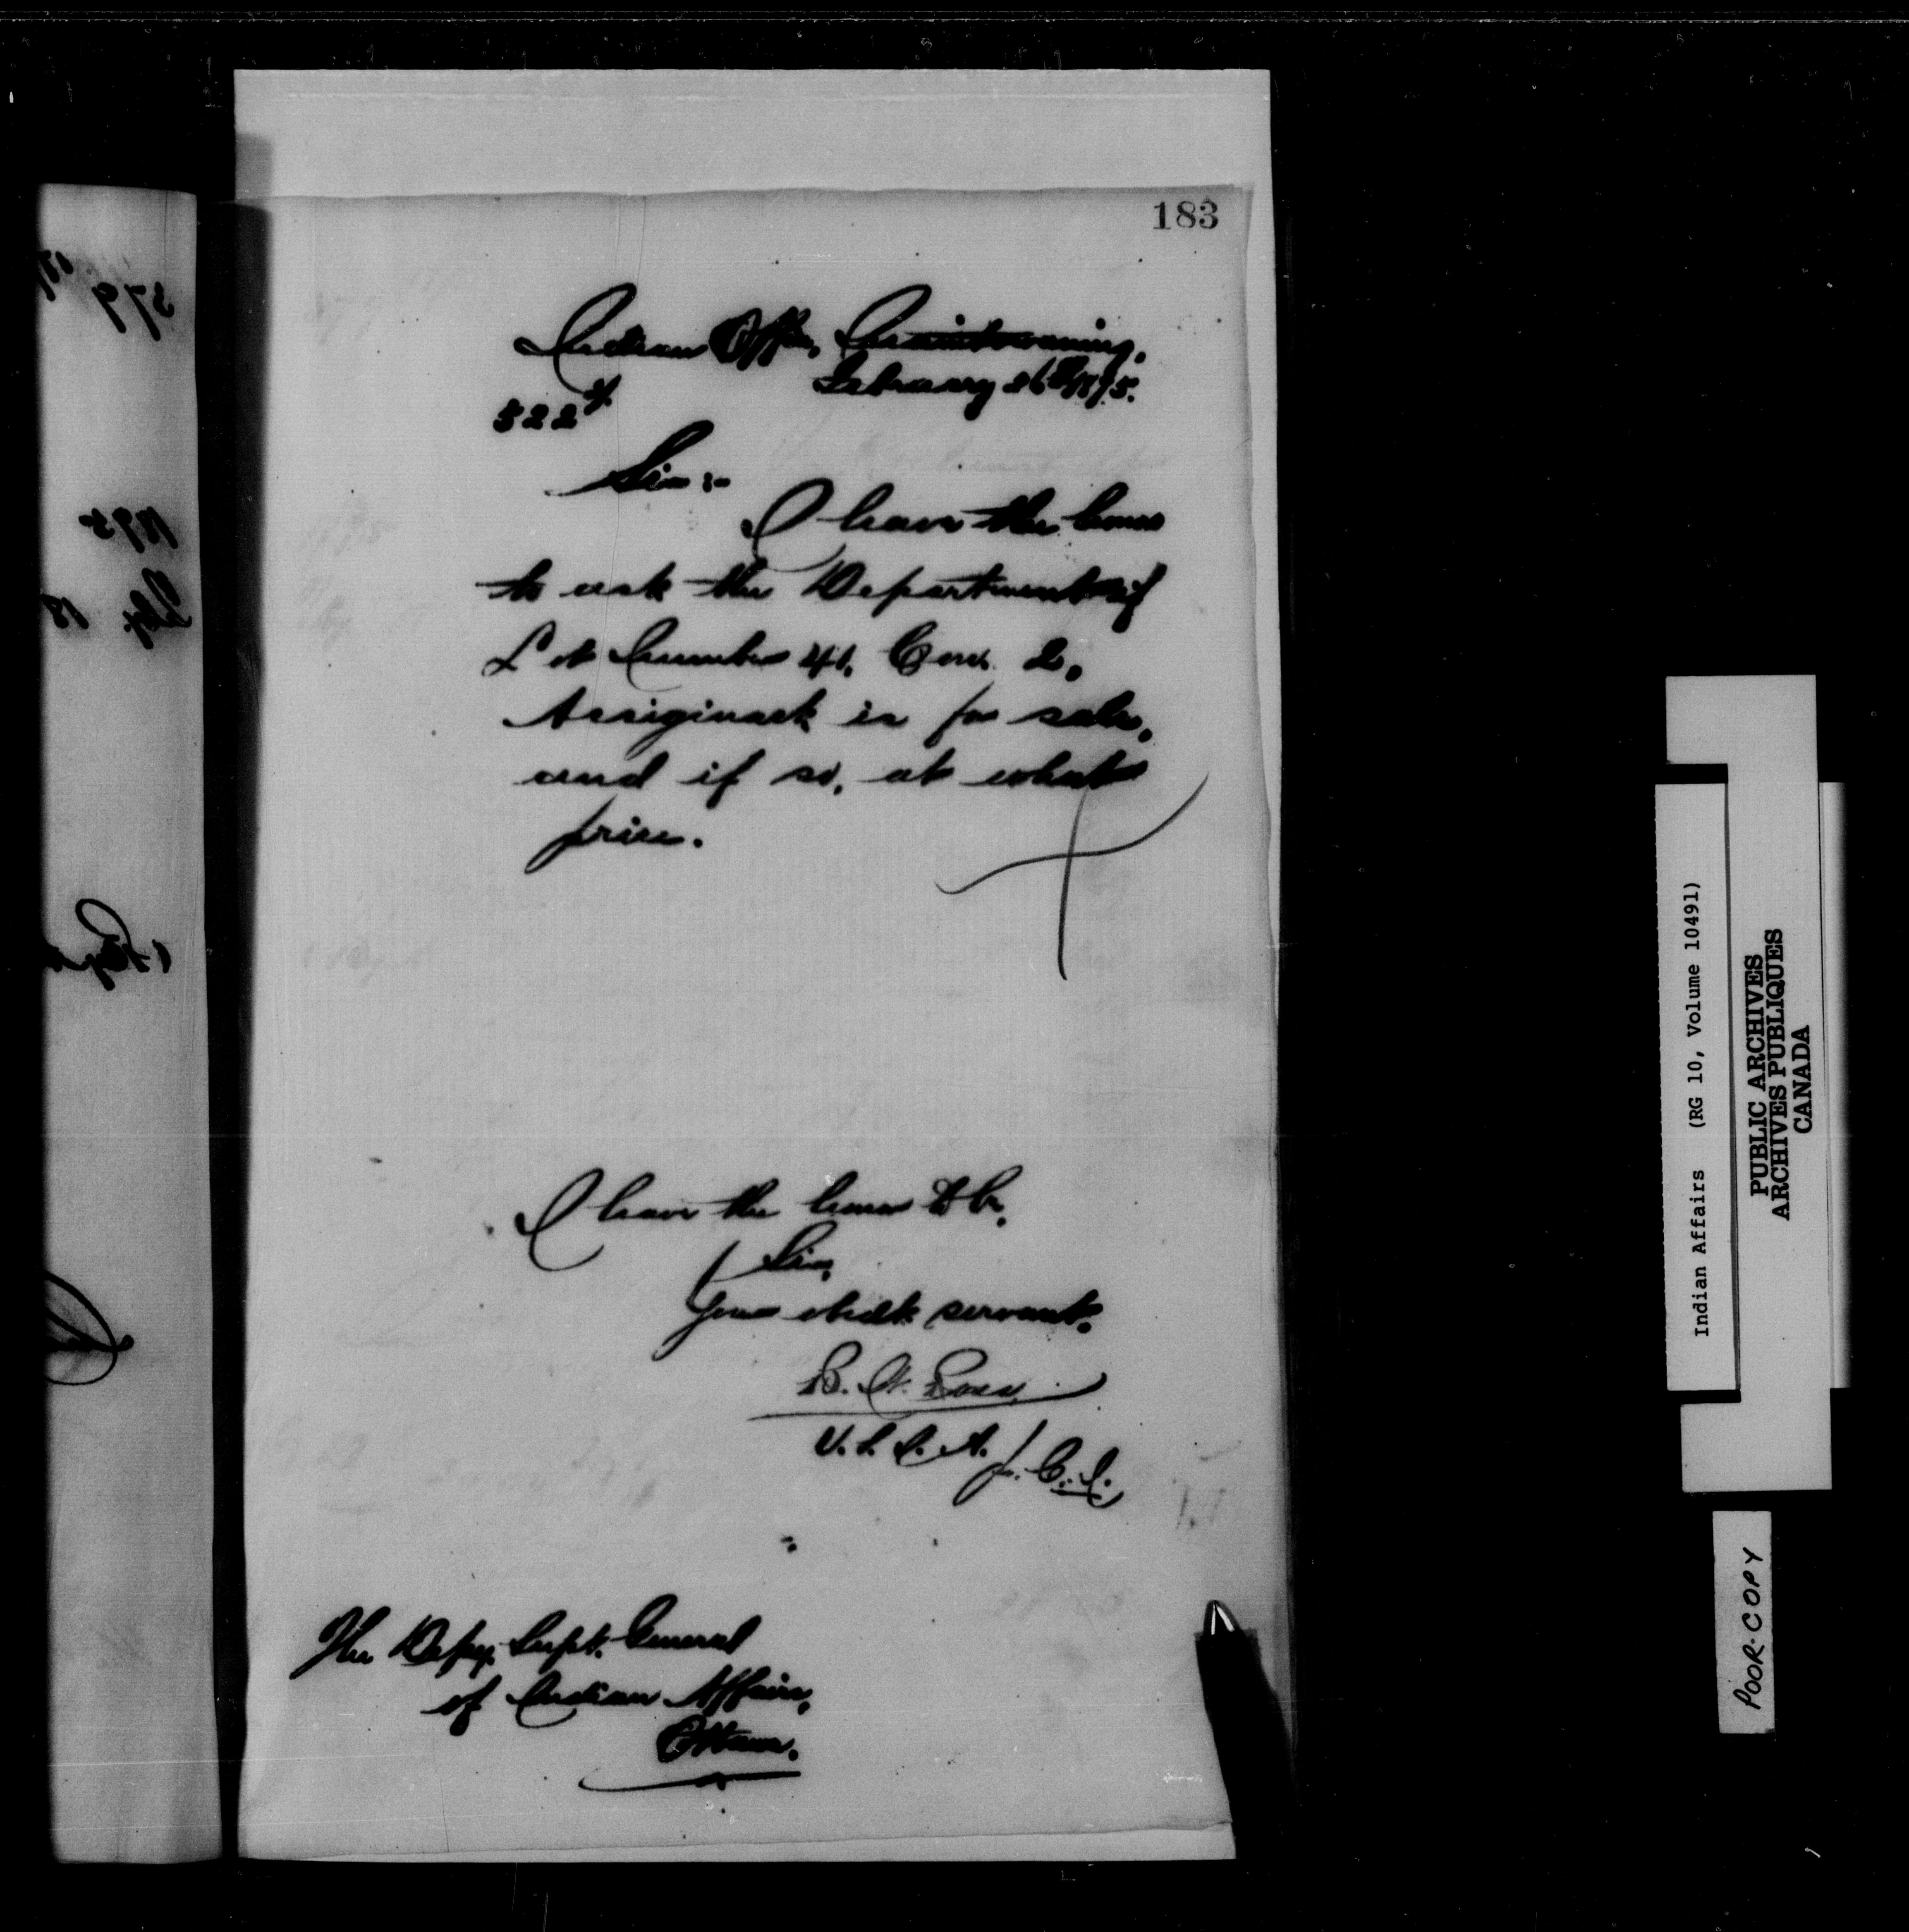 183
Indian Office, Manitowaning,
February 26th 1895.
522
Sir:-
I have the honor
to ask the Department if
Lot Number 41. Con. 2.
Assiginack is for sale,
and if so, at what
price.
I have the honor to be,
Sir,
Your obedt. servant.
B. W. Ross
V.S.I.A.
The Depy. Supt. General
of Indian Affairs,
Ottawa.
Indian Affairs (RG 10, Volume 10491)
PUBLIC ARCHIVES
ARCHIVES PUBLIQUES
CANADA
POOR COPY